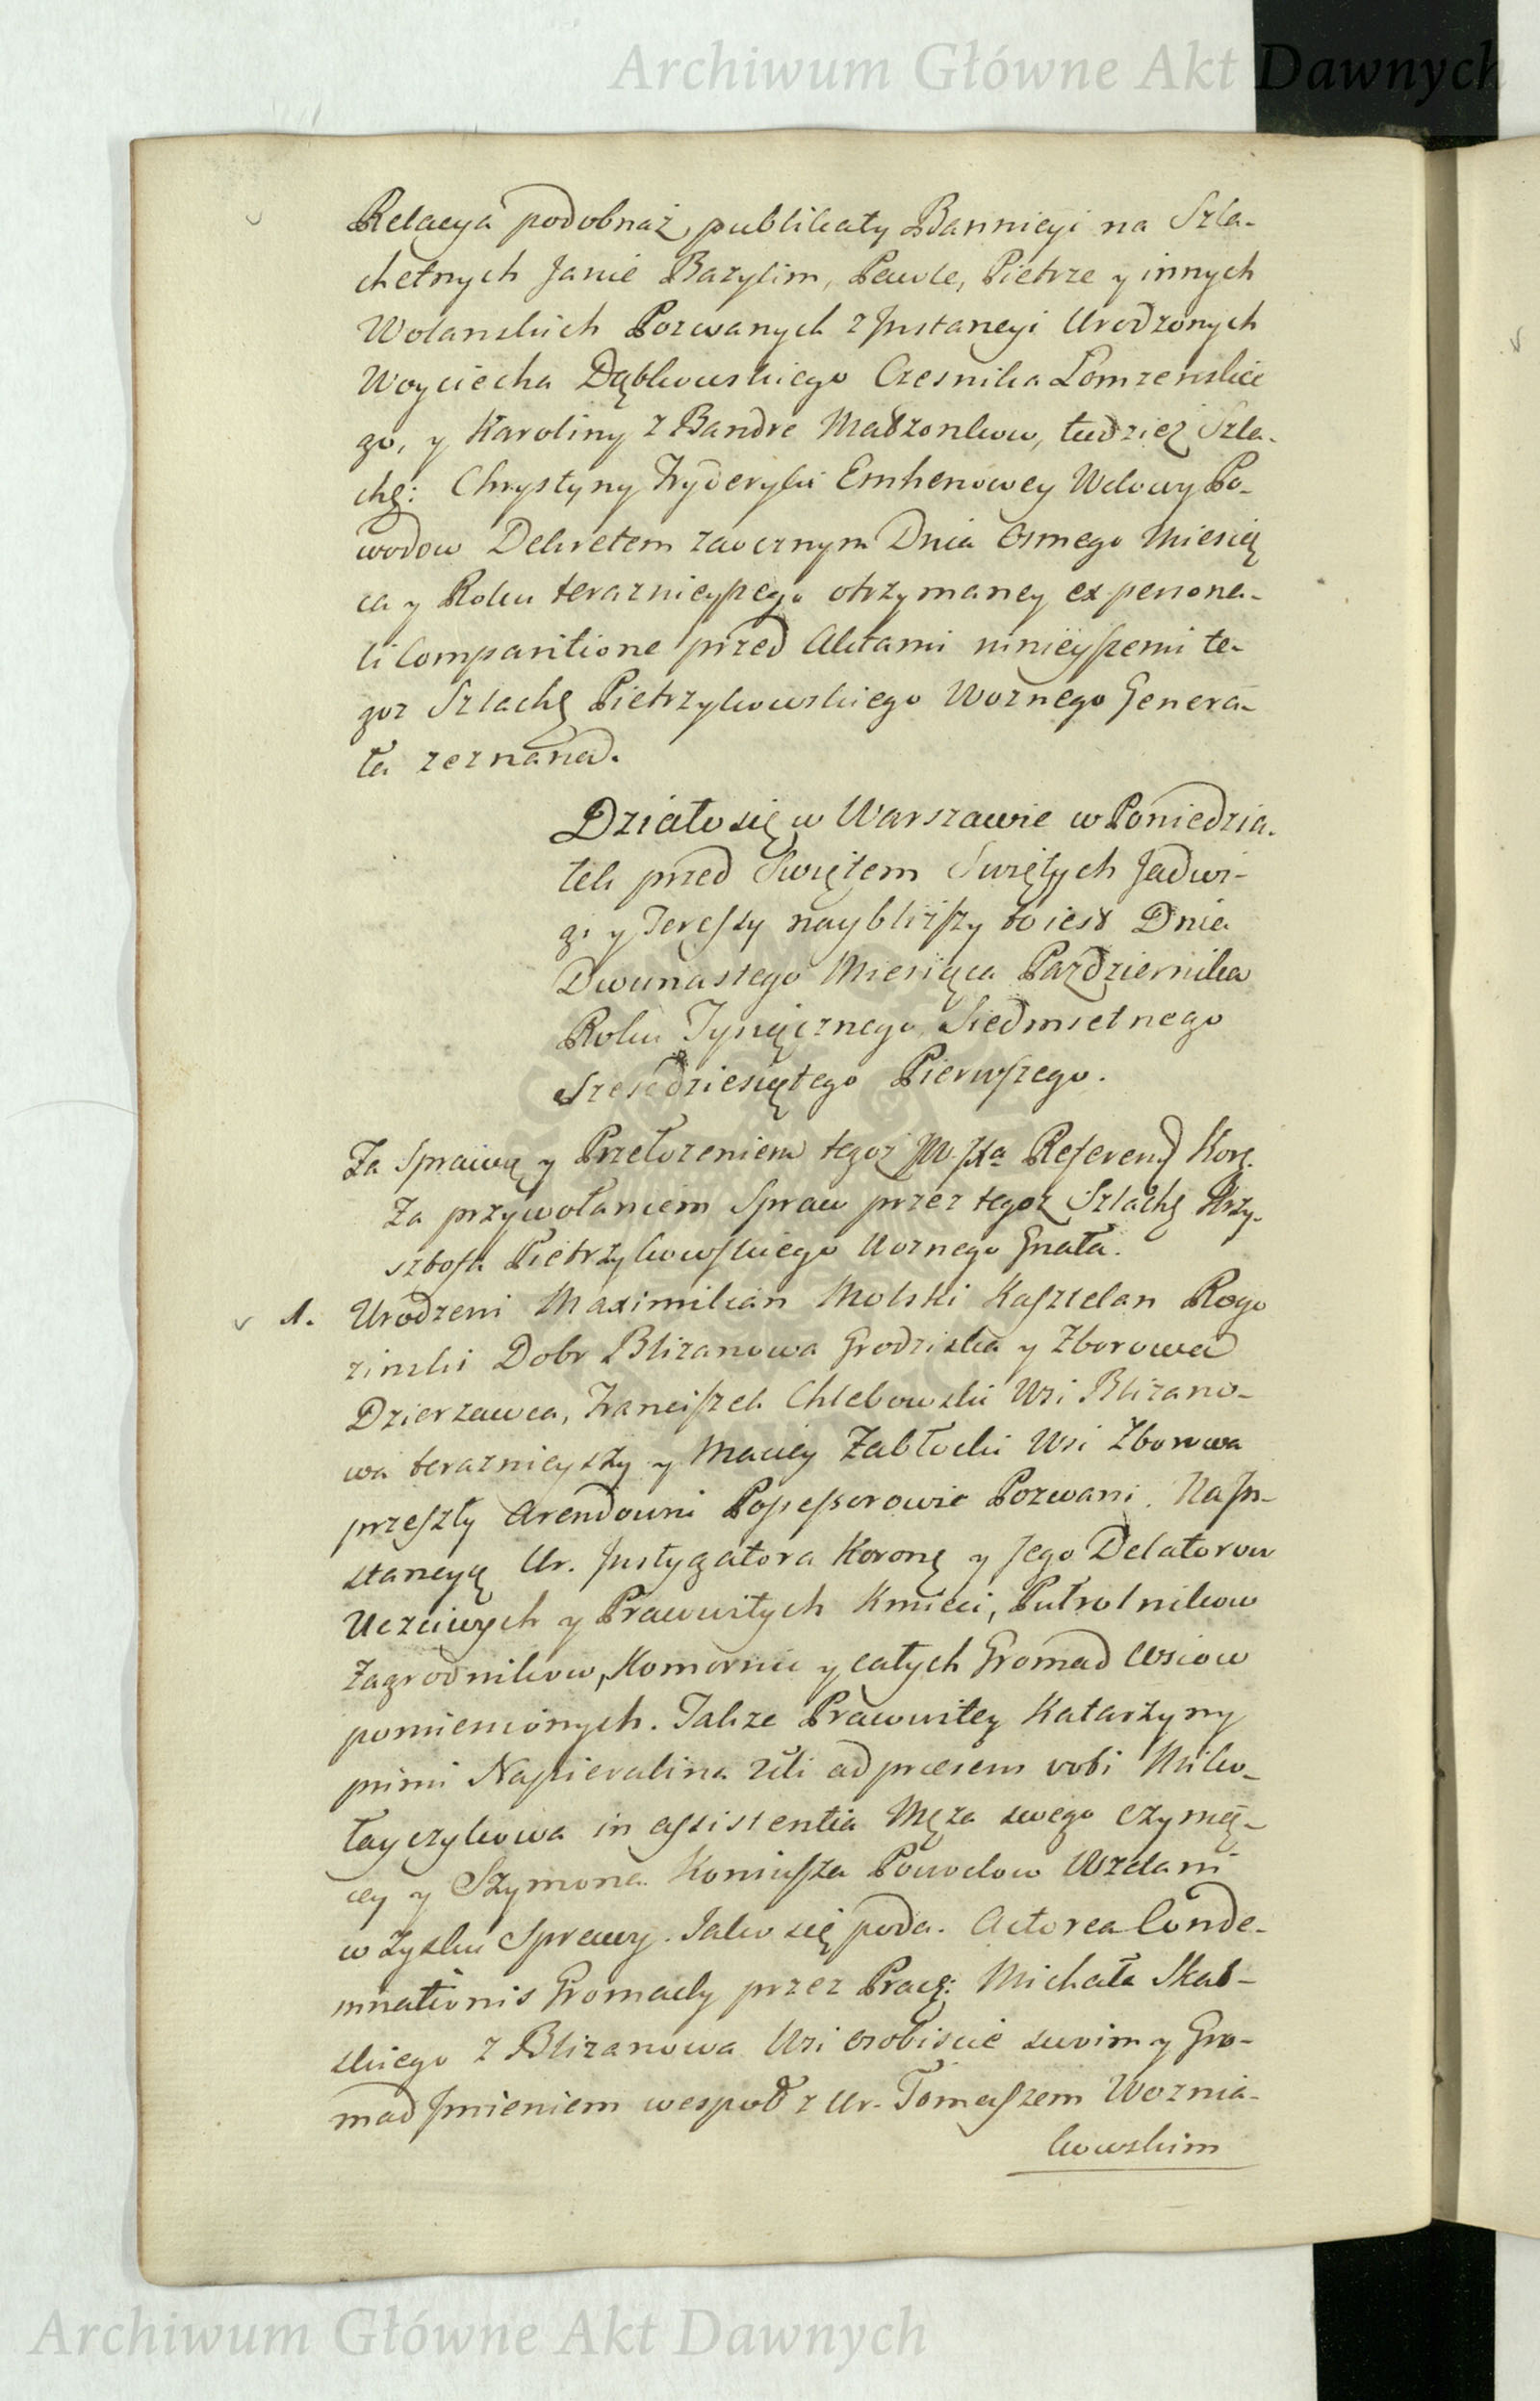 Archiwum Główne Akt Dawnych
Relacya podobnaż publikaty Bannicyi na Szla-
chetnych Janie Bazylim, Pawle, Pietrze y innych
Wolanskich Pozwanych z Jnstancyi Urodzonych
Woyciecha Dąbkowskiego Czesnika Łomzenskie
go, y Karoliny z Bandre Małzonkow, tudziez Szla-
chę: Chrystyny Fryderyki Emhenowey Wdowy Po-
wodow Dekretem zaocznym Dnia Osmego Miesią
ca y Roku teraznieyszego otrzymaney ex persona-
li Comparitione przed Aktami ninieyszemi te-
goz Szlachę Pietrzykowskiego Woznego Genera-
ła zeznana.
Działo się w Warszawie w Poniedzia-
łek przed Swiętem Swiętych Jadwi-
gi y Teressy naybliższy to iest Dnia
Dwunastego Miesiąca Pazdziernika
Roku Tysiącznego Siedmsetnego
Szescdziesiątego Pierwszego.
Za Sprawą y Przełozeniem tegoż JW. JXa Referend Korę.
Za przywołaniem Spraw przez tegoz Szlachę Krzy-
sztofa Pietrzykowskiego Woznego Gnała.
1. Urodzeni Maximilian Molski Kasztelan Rogo
zinski Dobr Blizanowa Grodziska y Zborowa
Dzierzawca, Franciszek Chlebowski Wsi Blizano-
wa teraznieyszy y Maciey Zabłocki Wsi Zborowa
przeszły Arendowni Possessorowie Pozwani. Na Jn-
stancyą Ur. Jnstygatora Koronę y Jego Delatorow
Uczciwych y Prawowitych Kmieci, Pułrolnikow
Zagrodnikow, Komornic y całych Gromad Wsiow
pomienionych. Takze Prawowitey Katarzyny
primi Napieralina 2di ad praesens voti Miko-
łayczykowa in assistentia Męza swego czynią-
cey y Szymona Koniusza Powodow Wzdani
w Zysku Sprawy. Jako się poda. Actorea Conde-
mnationis Gromady przez Pracę: Michała Skal-
skiego z Blizanowa Wsi osobiscie swoim y Gro-
mad Jmieniem wespoł z Ur. Tomaszem Woznia-
kowskim
Archiwum Główne Akt Dawnych